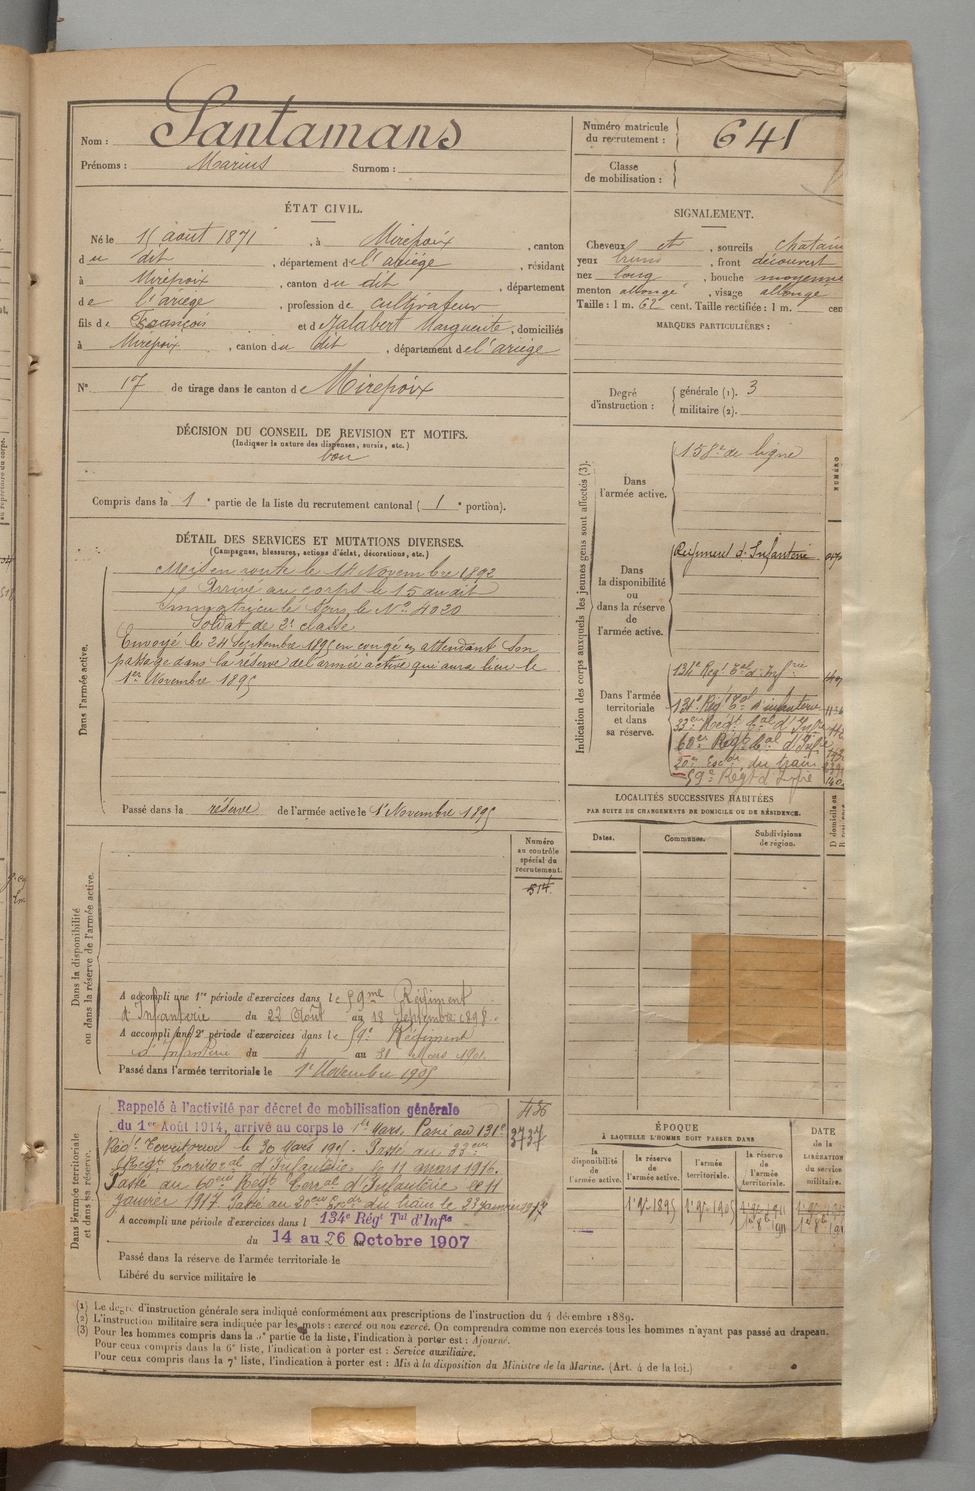 Nom : Santamans
Prénoms : Marius Surnom :
Numéro matricule du recrutement : 641
Classe de mobilisation :
ÉTAT CIVIL.
Né le 15 août 1871, à Mirepoix, canton
du dit, département de l'ariége, résidant
à Mirepoix, canton du dit, département
de l'ariége, profession de cultivateur
fils de François et de Jalabert Marguerite, domiciliés
à Mirepoix, canton du dit, département de l'ariége
SIGNALEMENT.
Cheveux et, sourcils chatain
yeux bruns, front découvert
nez long, bouche moyenne
menton allongé, visage allongé
Taille : 1 m. 62 cent. Taille rectifiée : 1 m. cen
MARQUES PARTICULIÈRES :
N° 17 de tirage dans le canton de Mirepoix
Degré d'instruction : générale (1). 3
militaire (2).
DÉCISION DU CONSEIL DE REVISION ET MOTIFS.
(Indiquer la nature des dispenses, sursis, etc.)
bon
Compris dans la 1e partie de la liste du recrutement cantonal (1e portion).
DÉTAIL DES SERVICES ET MUTATIONS DIVERSES.
(Campagnes, blessures, actions d'éclat, décorations, etc.)
Dans l'armée active.
Mis en route le 14 Novembre 1892
Arrivé au corps le 15 dudit
Immatriculé sous le N° 4020
Soldat de 2e classe
Envoyé le 24 Septembre 1895 en congé en attendant son
passage dans la réserve de l'armée active qui aura lieu le
1er Novembre 1895
Passé dans la réserve de l'armée active le 1er Novembre 1895
Indication des corps auxquels les jeunes gens sont affectés (3).
NUMÉRO
Dans l'armée active.
158e de ligne
Dans la disponibilité ou dans la réserve de l'armée active.
Régiment d'Infanterie
Dans l'armée territoriale et dans sa réserve.
134e Régt Tal d'Infrie
131e Régt Tal d'infanterie
33em Regt Tal d'Infie
60em Régt Tal d'Infie
20em Escon du train
59e Régt d'Infie
LOCALITÉS SUCCESSIVES HABITÉES
PAR SUITE DE CHANGEMENTS DE DOMICILE OU DE RÉSIDENCE.
Dates. Communes. Subdivisions de région.
D domicile ou
Dans la disponibilité
ou dans la réserve de l'armée active.
Numéro
au contrôle
spécial du
recrutement.
514
A accompli une 1re période d'exercices dans le 59me Régiment
d'Infanterie du 22 Août au 18 Septembre 1898.
A accompli une 2e période d'exercices dans le 59e Régiment
d'Infanterie du 4 au 31 Mars 1901
Passé dans l'armée territoriale le 1er Novembre 1905
Dans l'armée territoriale
et dans sa réserve.
436
3737
Rappelé à l'activité par décret de mobilisation générale
du 1er Août 1914, arrivé au corps le 1er Mars. Passé au 131e
Régt Territorial le 30 Mars 1915. Passé au 33em
Régt territoral d'Infanterie le 11 mars 1916.
Passé au 60em Régt Terral d'Infanterie le 11
janvier 1917 Passé au 20em Escdr du train le 23 janvier 1917
A accompli une période d'exercices dans l 134e Régt Tal d'Infie
du 14 au 26 Octobre 1907
Passé dans la réserve de l'armée territoriale le
Libéré du service militaire le
ÉPOQUE
À LAQUELLE L'HOMME DOIT PASSER DANS
la disponibilité de l'armée active.
la réserve de l'armée active.
l'armée territoriale.
la réserve de l'armée territoriale.
DATE de la LIBÉRATION du service militaire.
1er 9bre 1895 1er 9bre 1905
(1) Le degré d'instruction générale sera indiqué conformément aux prescriptions de l'instruction du 4 décembre 1889.
(2) L'instruction militaire sera indiquée par les mots : exercé ou non exercé. On comprendra comme non exercés tous les hommes n'ayant pas passé au drapeau.
(3) Pour les hommes compris dans la 2e partie de la liste, l'indication à porter est : Ajourné.
Pour ceux compris dans la 6e liste, l'indication à porter est : Service auxiliaire.
Pour ceux compris dans la 7e liste, l'indication à porter est : Mis à la disposition du Ministre de la Marine. (Art. 4 de la loi.)